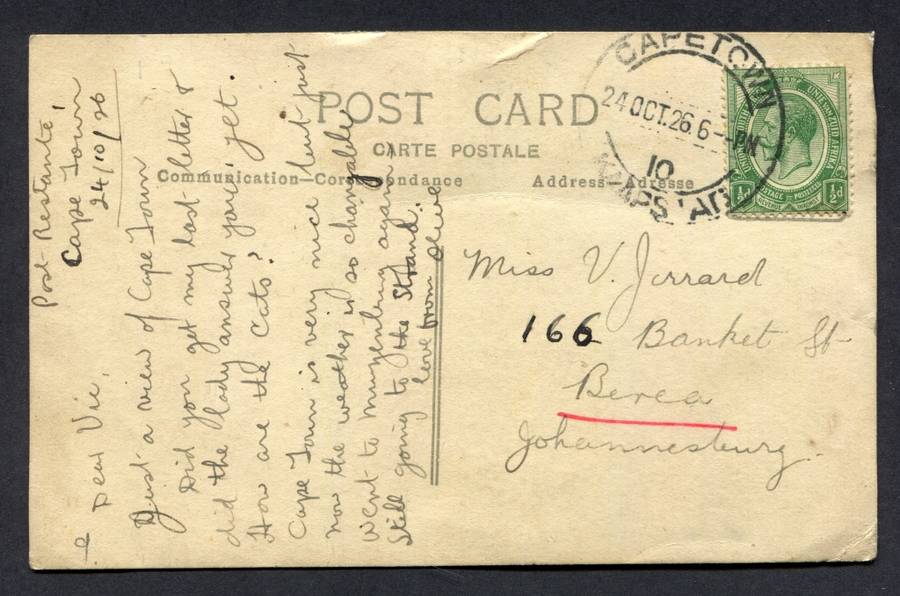 POST CARD
CARTE POSTALE
Communication–Correspondance
Address–Adresse
CAPETOWN
24 OCT. 26 6– PM
10
KAAPSTAD
½d
½d
Post Restante,
Cape Town
24/10/26
Dear Vic,
Just a view of Cape Town
Did you get my last letter &
did the lady answer your's yet.
How are the cats?
Cape Town is very nice but just
now the weather is so changable
Went to Muizenburg again
Still going to the Strand.
love from Olive
Miss V. Jorrard
166 Banket St
Berea
Johannesburg.